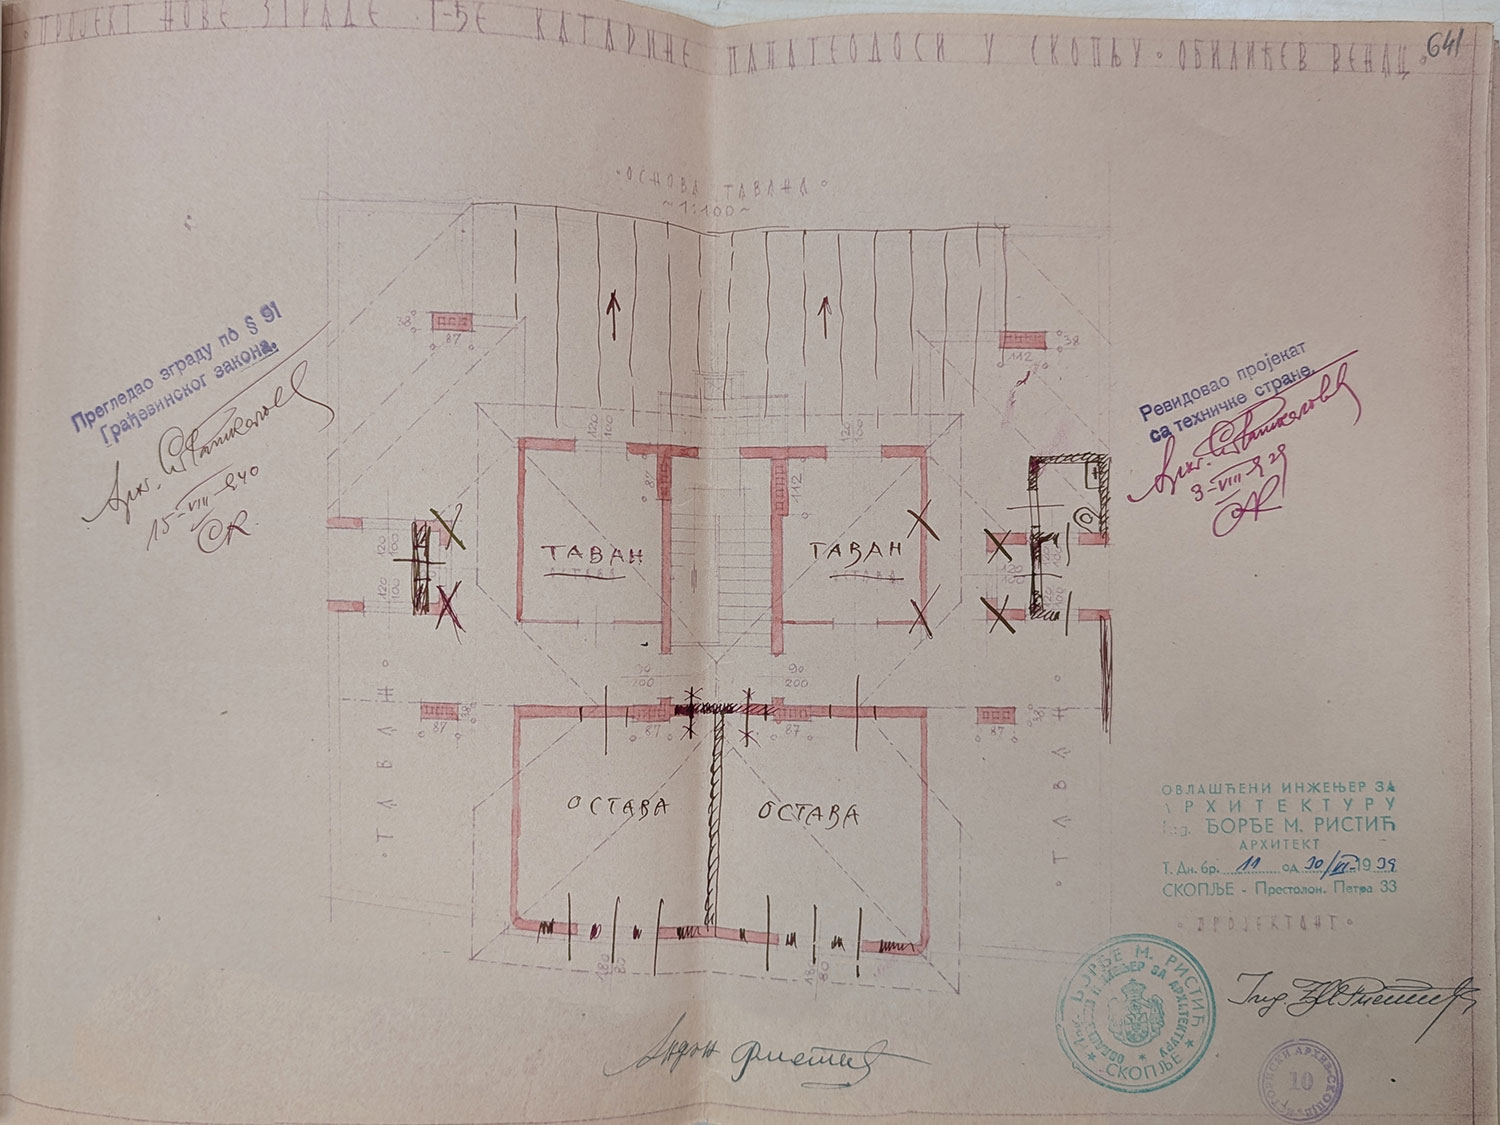 · ПРОЈЕКТ НОВЕ ЗГРАДЕ Г-ЂЕ КАТАРИНЕ ПАПАТЕОДОСИ У СКОПЉУ · ОБИЛИЋЕВ ВЕНАЦ ·
641
· ОСНОВА ТАВАНА ·
~ 1:100 ~
Прегледао зграду по § 91
Грађевинског закона.
15-VIII-940
Ревидовао пројекат
са техничке стране.
9-VIII-939
38
87
112
38
120
100
120
100
87
112
ТАВАН
ОСТАВА
ТАВАН
ОСТАВА
120
100
120
100
120
100
120
100
90
200
90
200
87
38
87
87
87
38
· ТАВАН ·
· ТАВАН ·
ОСТАВА
ОСТАВА
180
80
180
80
ОВЛАШЋЕНИ ИНЖЕЊЕР ЗА
АРХИТЕКТУРУ
Инг. ЂОРЂЕ М. РИСТИЋ
АРХИТЕКТ
Т. Дн. бр. 11 од 30/VI-1939
СКОПЉЕ - Престолон. Петра 33
· ПРОЈЕКТАНТ ·
Инг. ЂОРЂЕ М. РИСТИЋ
ОВЛАШЋЕНИ ИНЖЕЊЕР ЗА АРХИТЕКТУРУ
* СКОПЉЕ *
ИСТОРИСКИ АРХИВ-СКОПЈЕ
10